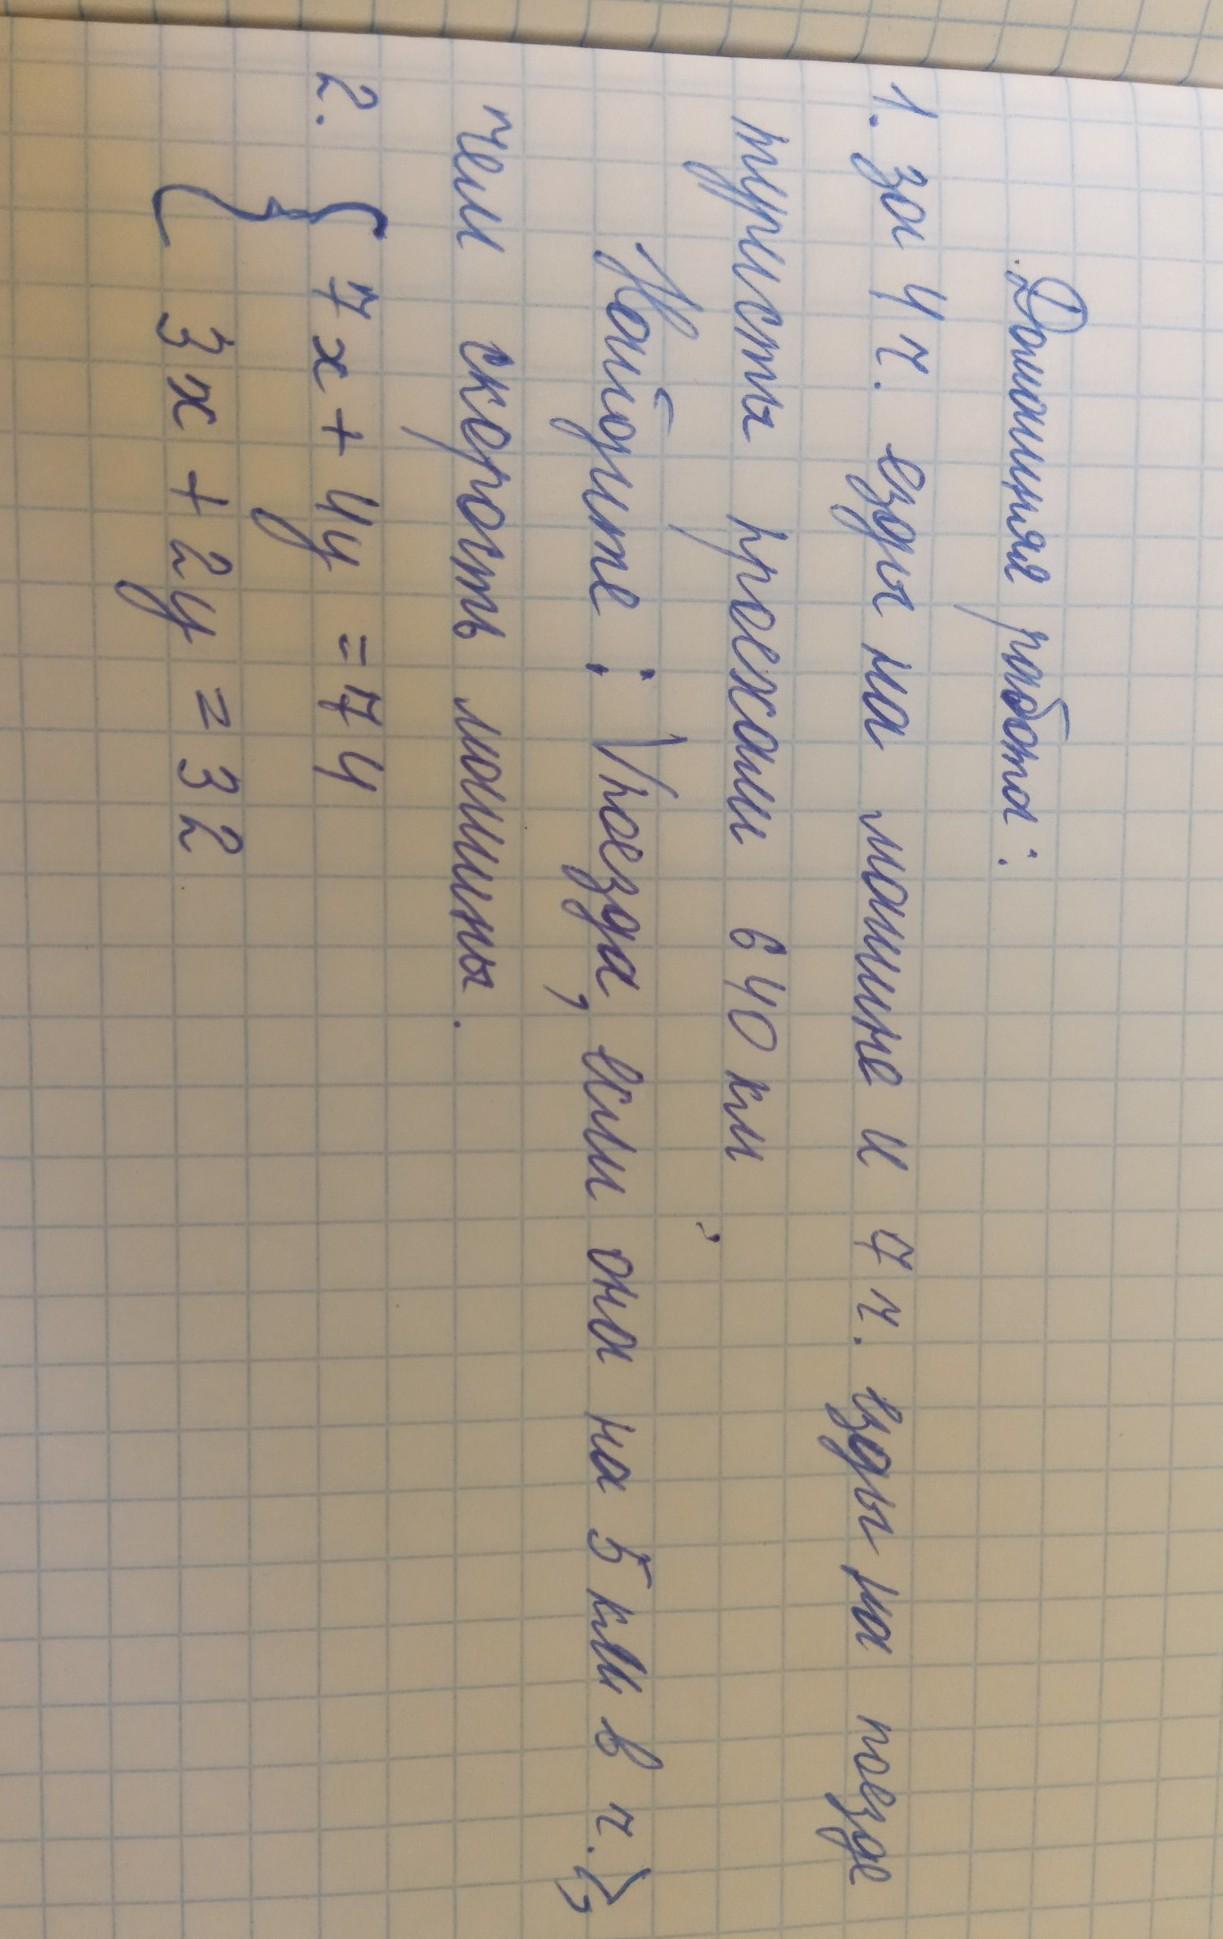 Домашняя работа:
1. за 4 ч. езды на машине и 7 ч. езды на поезде
туристы проехали 640 км
Найдите: Vпоезда, если она на 5 км в ч. >,
чем скорость машины.
2. { 7x + 4y = 74
3x + 2y = 32